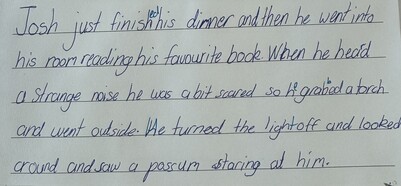 Josh just finished his dinner and then he went into
his room reading his favourite book. When he heard
a strange noise he was a bit scared so he grabed a torch
and went outside. He turned the light off and looked
around and saw a possum staring at him.